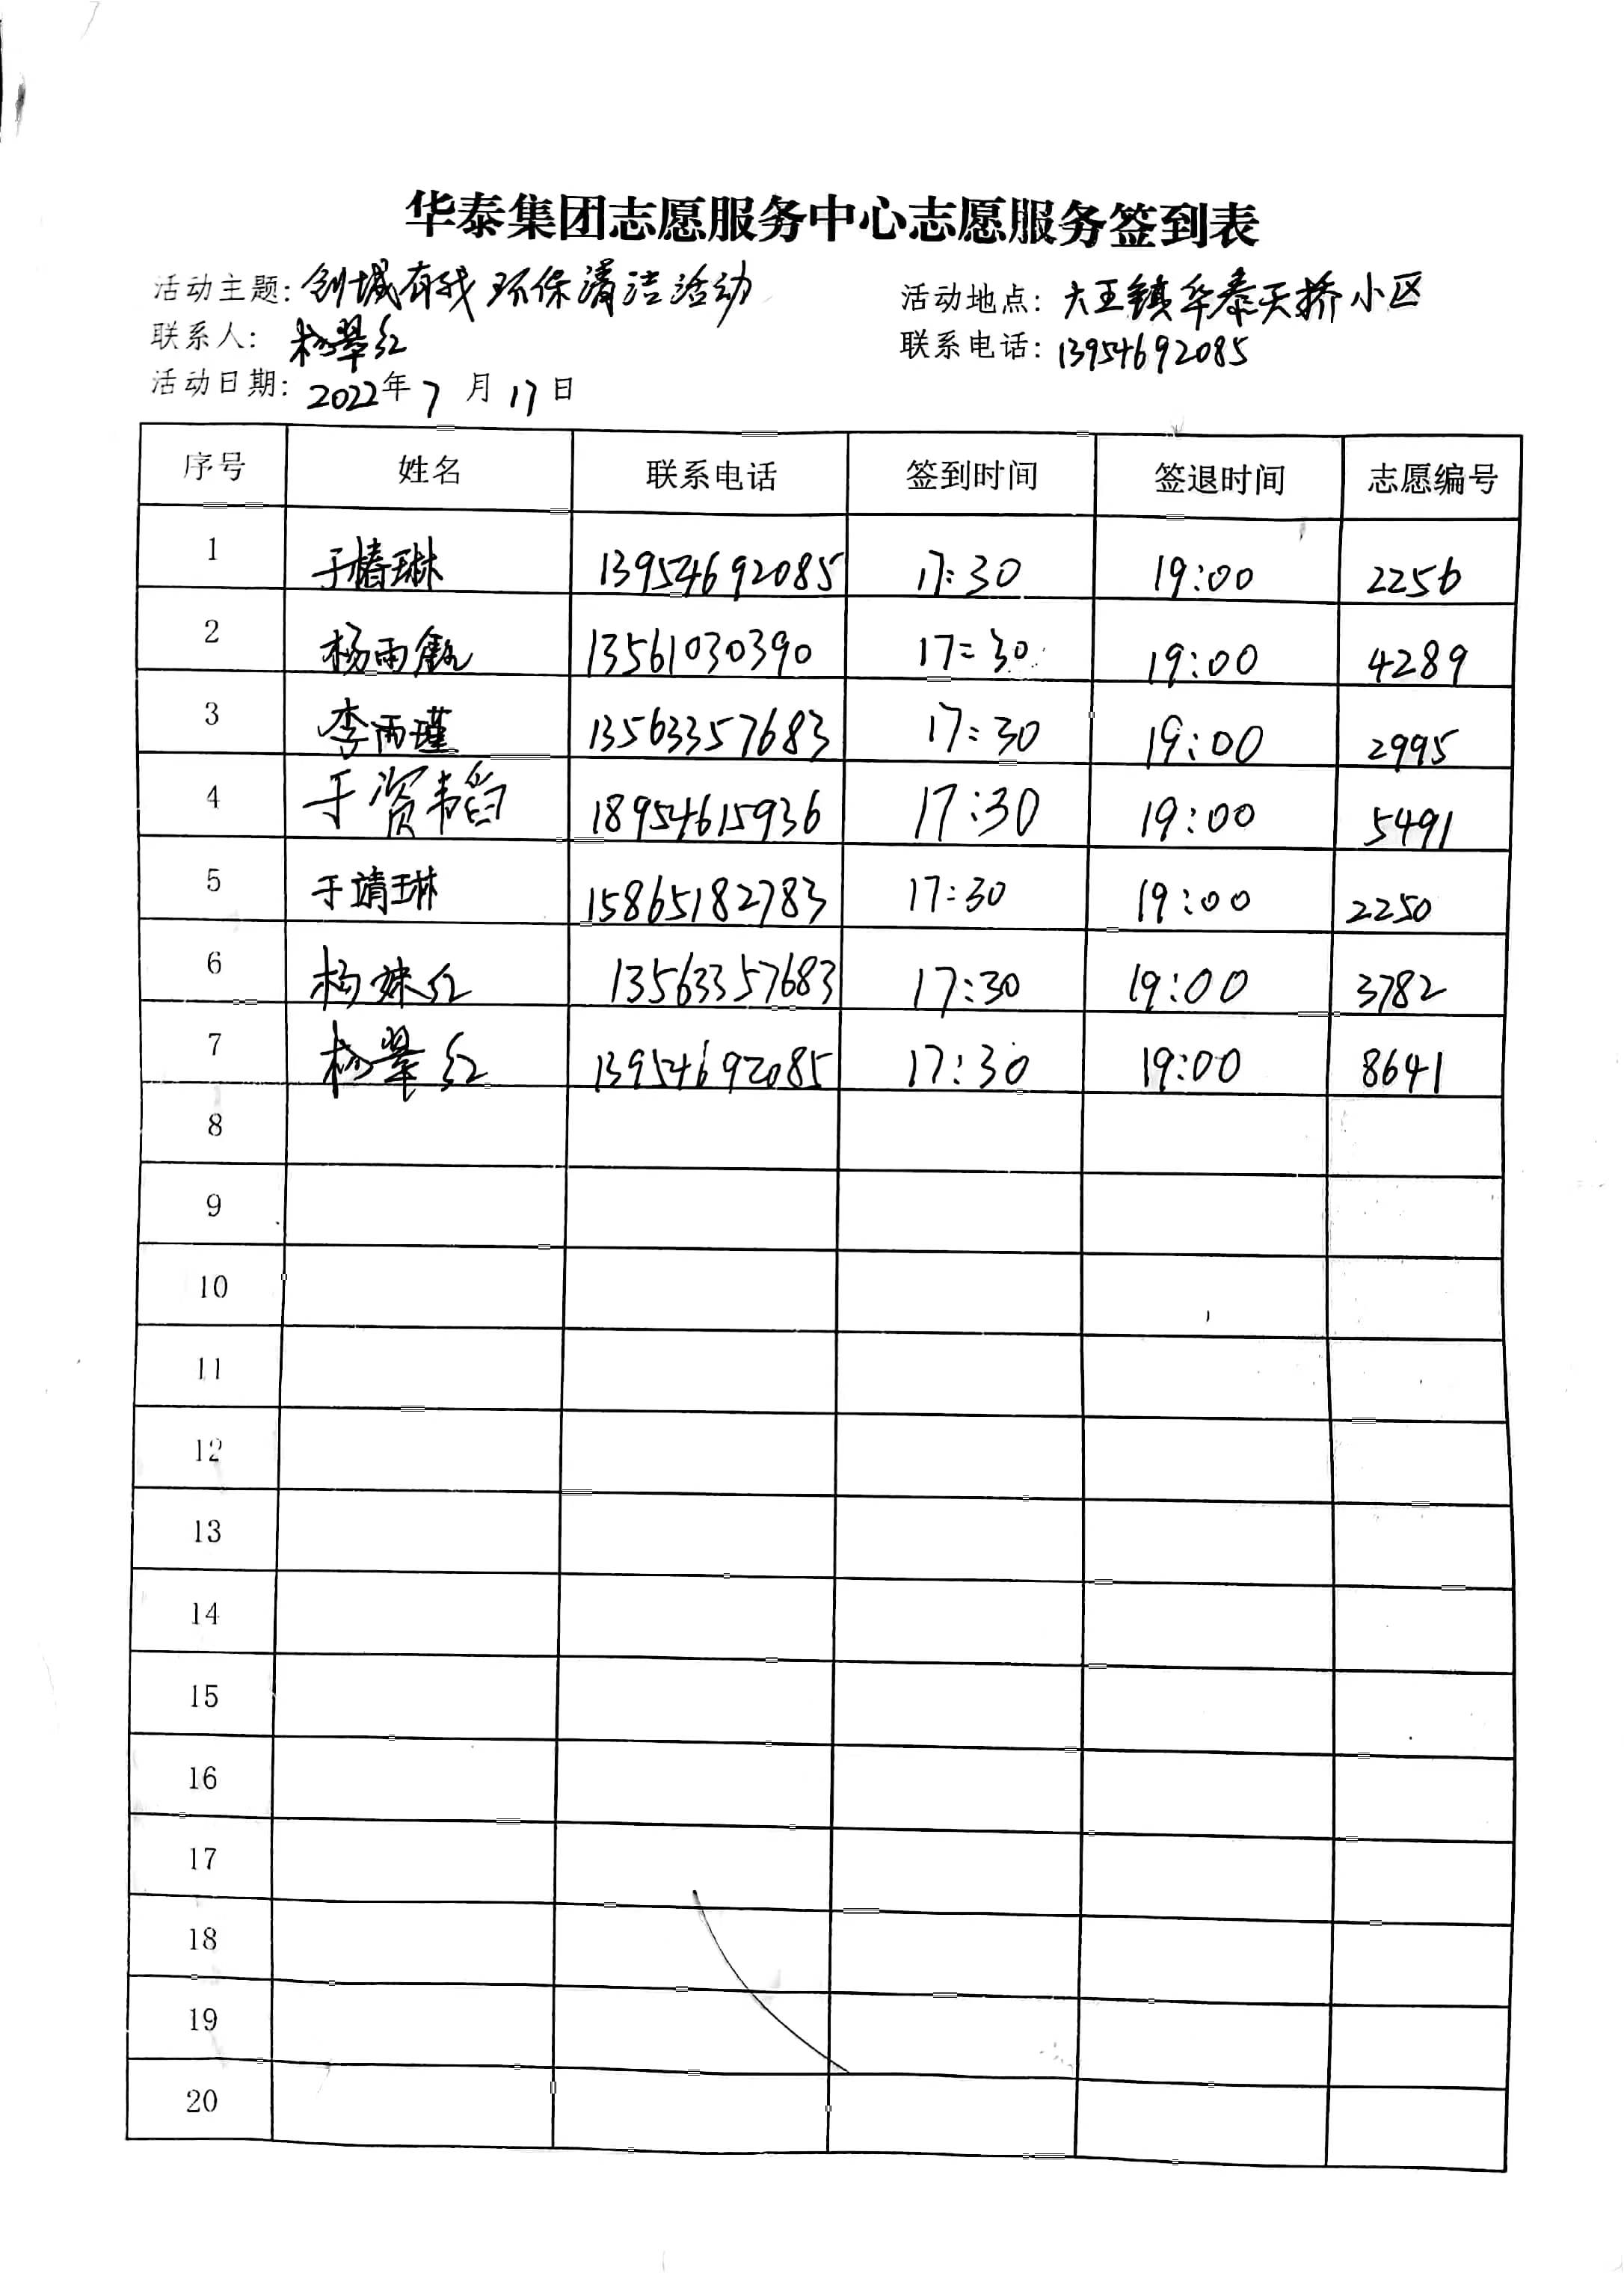 华泰集团志愿服务中心志愿服务签到表
活动主题: 创城有我 环保清洁活动 活动地点: 大王镇华泰天桥小区
联系人: 杨翠红 联系电话: 13954692085
活动日期: 2022年7月17日
序号 姓名 联系电话 签到时间 签退时间 志愿编号
1 于椿琳 13954692085 17:30 19:00 2256
2 杨雨 13561030390 17:30 19:00 4289
3 李雨瑾 13563357683 17:30 19:00 2995
4 于资韬 18954615936 17:30 19:00 5491
5 于靖琳 15865182783 17:30 19:00 2250
6 杨妹红 13563357683 17:30 19:00 3782
7 杨翠红 13954692085 17:30 19:00 8641
8
9
10
11
12
13
14
15
16
17
18
19
20